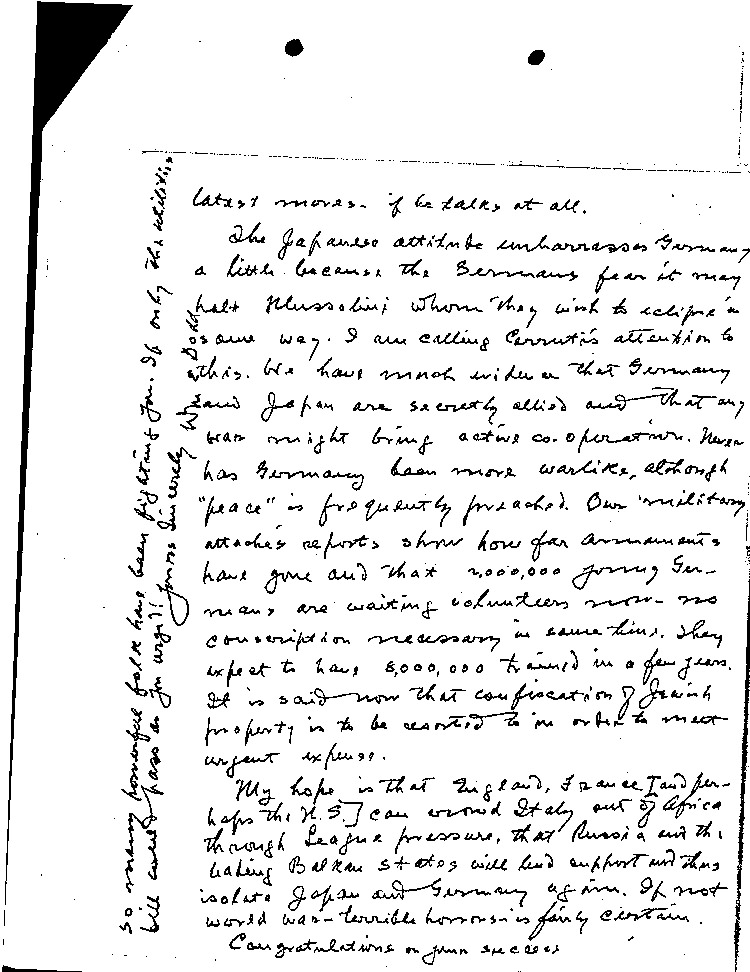 latest moves - if he talks at all.
The Japanese attitude embarrasses Germany
a little because the Germans fear it may
halt Mussolini whom they wish to eclipse in
some way. I am calling Cerruti's attention to
this. We have much evidence that Germany
and Japan are secretly allied and that any
war might bring active co-operation. Never
has Germany been more warlike, although
"peace" is frequently preached. Our military
attaché's reports show how far armaments
have gone and that 2,000,000 young Ger-
mans are waiting volunteers now - no
conscription necessary in some time. They
expect to have 8,000,000 trained in a few years.
It is said now that confiscation of Jewish
property is to be resorted to in order to meet
urgent expense.
My hope is that England, France [and per-
haps the U.S.] can crowd Italy out of Africa
through League pressure, that Russia and the
Balkan states will lend support and thus
isolate Japan and Germany again. If not
world war - terrible horrors - is fairly certain.
Congratulations on your success
So many powerful folk have been fighting you. If only the utilities
bill could pass as you urged! Yours Sincerely
Wm E Dodd